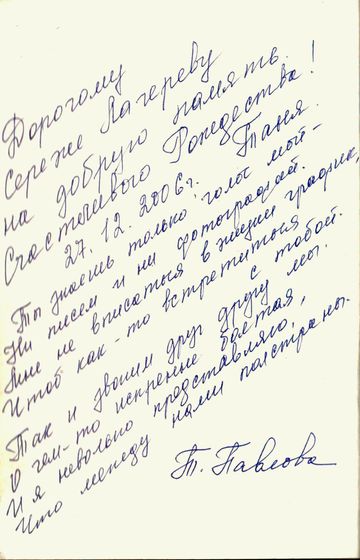 Дорогому
Сереже Лагереву
на добрую память.
Счастливого Рождества!
27.12.2006г. Таня.
Ты знаешь только голос мой –
Ни писем и ни фотографий.
Мне не вписаться в жизни график,
Чтоб как-то встретиться с тобой.
Так и звоним друг другу мы.
О чем-то искренне болтая,
И я невольно представляю,
Что между нами полстраны.
Т. Павлова